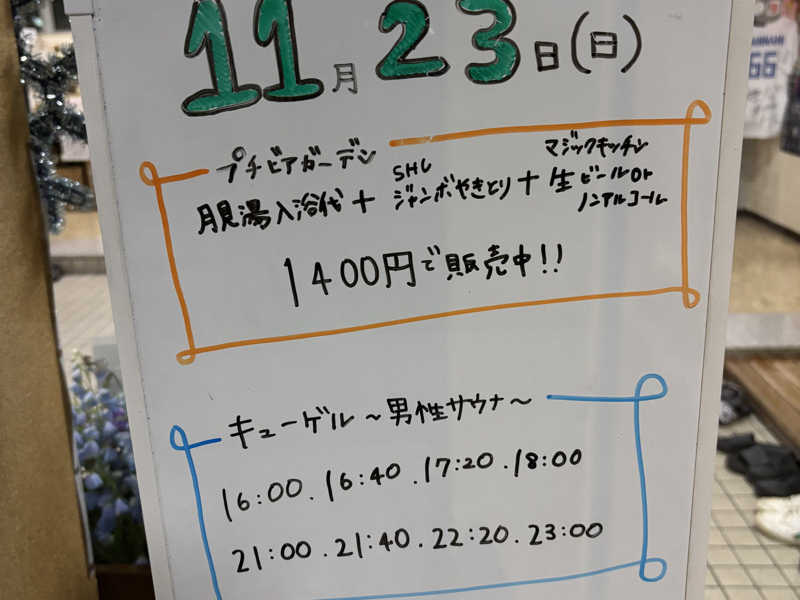 11月23日(日)
プチビアガーデン
月見湯入浴代+SHLジャンボやきとり+マジックキッチン生ビールorノンアルコール
1400円で販売中!!
キューゲル〜男性サウナ〜
16:00.16:40.17:20.18:00
21:00.21:40.22:20.23:00
66